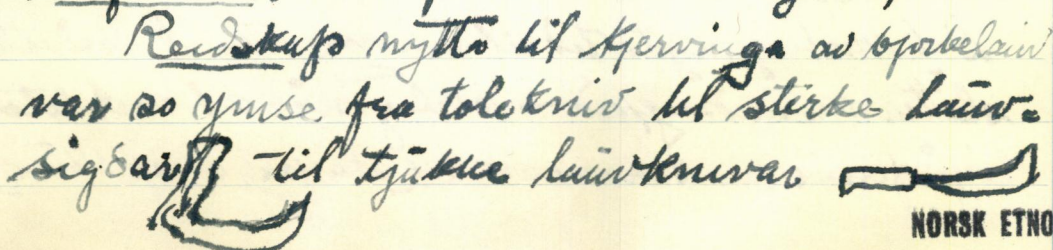 Reidskap nytta til kjervinga av bjørkelauv
var so ymse fra tolekniv til sterke lauv-
sigdar til tjukke lauvknivar
NORSK ETNO